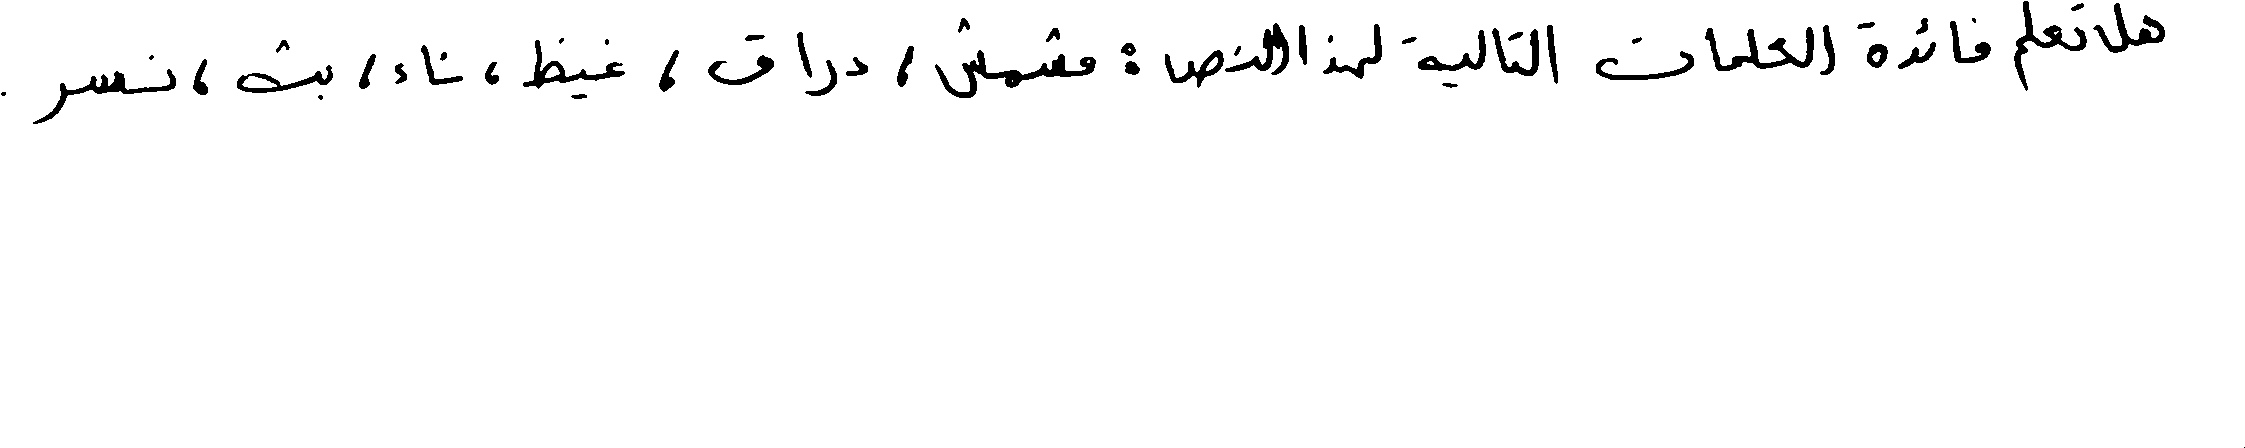 هل تعلم فائدة الكلمات التالية لهذا النص : مشمش ، دراق ، غيظ ، ناء ، بث ، نسر .